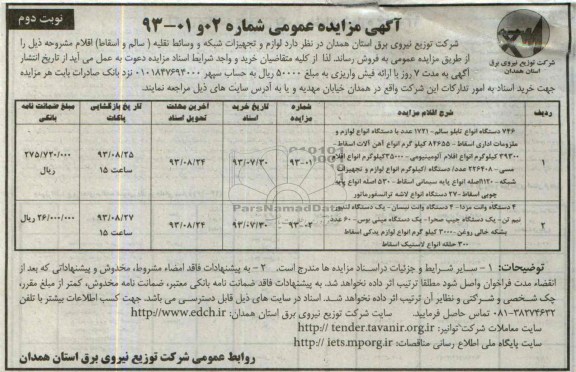 نوبت دوم
آگهی مزایده عمومی شماره ۰۲ و ۰۱-۹۳
شرکت توزیع نیروی برق
استان همدان
شرکت توزیع نیروی برق استان همدان در نظر دارد لوازم و تجهیزات شبکه و وسائط نقلیه ( سالم و اسقاط) اقلام مشروحه ذیل را
از طریق مزایده عمومی به فروش رساند. لذا از کلیه متقاضیان خرید و واجد شرایط اسناد مزایده دعوت به عمل می آید از تاریخ انتشار
آگهی به مدت ۷ روز با ارائه فیش واریزی به مبلغ ۵۰۰۰۰ ریال به حساب سپهر ۰۱۰۱۸۳۷۶۹۴۰۰۰ نزد بانک صادرات بابت هر مزایده
جهت خرید اسناد به امور تدارکات این شرکت واقع در همدان خیابان مهدیه و یا به آدرس سایت های ذیل مراجعه نمایند.
ردیف | شرح اقلام مزایده | شماره مزایده | تاریخ خرید اسناد | آخرین مهلت تحویل اسناد | تاریخ بازگشایی پاکات | مبلغ ضمانت نامه بانکی
۱ | ۷۴۶ دستگاه انواع تابلو سالم - ۱۷۲۱ عدد یا دستگاه انواع لوازم و
ملزومات اداری اسقاط - ۸۴۶۵۵ کیلو گرم انواع آهن آلات اسقاط -
۳۹۳۰۰ کیلوگرم انواع اقلام آلومینیومی - ۳۵۰۰۰ کیلوگرم انواع اقلام
مسی - ۲۲۶۴۰۸ عدد/ دستگاه /کیلوگرم انواع لوازم و تجهیزات
شبکه - ۱۱۲۰ اصله انواع پایه سیمانی اسقاط - ۵۳۰ اصله انواع پایه
چوبی اسقاط - ۲۷ دستگاه انواع لاشه ترانسفورماتور | ۹۳-۰۱ | ۹۳/۰۷/۳۰ | ۹۳/۰۸/۲۴ | ۹۳/۰۸/۲۵ ساعت ۱۵ | ۲۷۵/۷۳۰/۰۰۰ ریال
۲ | ۴ دستگاه وانت مزدا - ۴ دستگاه وانت نیسان - یک دستگاه لندور
نیم تن - یک دستگاه جیپ صحرا - یک دستگاه مینی بوس - ۶۰ عدد
بشکه خالی روغن - ۳۰۰۰ کیلو گرم انواع لوازم یدکی اسقاط
۳۰۰ حلقه انواع لاستیک اسقاط | ۹۳-۰۲ | ۹۳/۰۷/۳۰ | ۹۳/۰۸/۲۴ | ۹۳/۰۸/۲۷ ساعت ۱۵ | ۲۶/۰۰۰/۰۰۰ ریال
ParsNamadData
توضیحات: ۱ - سایر شرایط و جزئیات در اسناد مزایده ها مندرج است. ۲- به پیشنهادات فاقد امضاء مشروط، مخدوش و پیشنهاداتی که بعد از
انقضاء مدت فراخوان واصل شود مطلقا ترتیب اثر داده نخواهد شد. به پیشنهادات فاقد ضمانت نامه بانکی معتبر، ضمانت نامه مخدوش، کمتر از مبلغ مقرر،
چک شخصی و شرکتی و نظایر آن ترتیب اثر داده نخواهد شد. اسناد در سایت های ذیل قابل دسترسی می باشد. جهت کسب اطلاعات بیشتر با تلفن
۰۸۱-۳۸۲۷۴۶۳۲ تماس حاصل فرمایید. سایت شرکت توزیع نیروی برق استان همدان: http://www.edch.ir
سایت معاملات شرکت توانیر: http:// tender.tavanir.org.ir
سایت پایگاه ملی اطلاع رسانی مناقصات: http:// iets.mporg.ir
روابط عمومی شرکت توزیع نیروی برق استان همدان